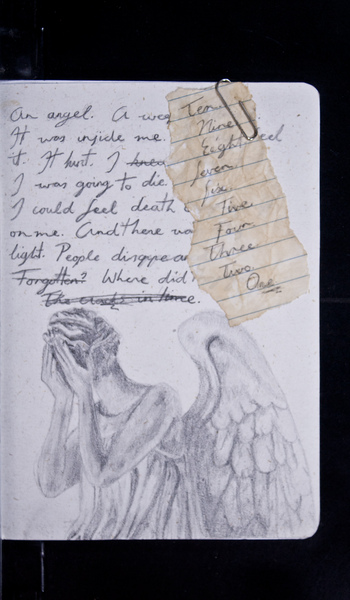 An angel. A wee
It was inside me.
it. It hurt. I knew
I was going to die.
I could feel death
on me. And there wa
light. People disappea
Forgotten? Where did
The cracks in time.
Ten
Nine
Eight
Seven
Six
Five
Four
Three
Two
One